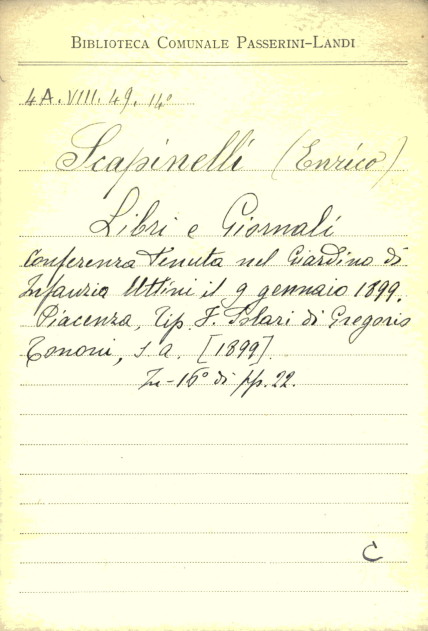 BIBLIOTECA COMUNALE PASSERINI-LANDI
4A. VIII. 49. 14º
Scapinelli (Enrico)
Libri e Giornali
Conferenza tenuta nel Giardino di
Infanzia Uttini il 9 gennaio 1899.
Piacenza, Tip. F. Solari di Gregorio
Tononi, s. a. [1899].
In-16º di pp. 22.
C